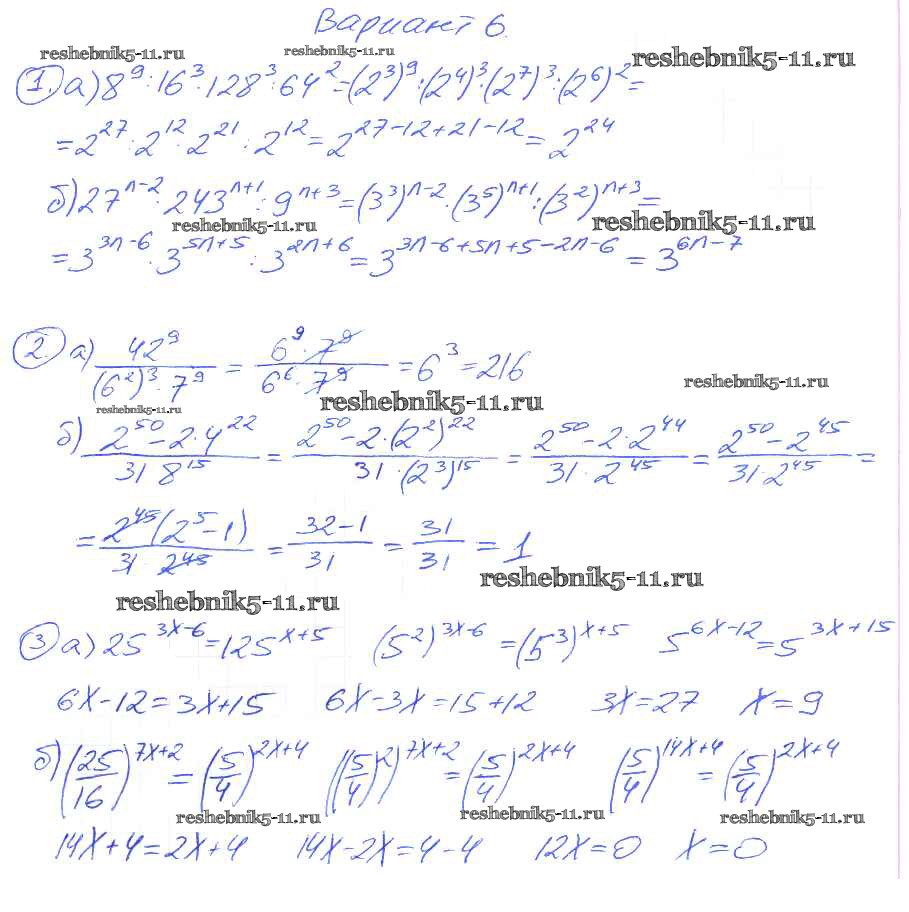 Вариант 6.
reshebnik5-11.ru reshebnik5-11.ru reshebnik5-11.ru
1. а) 8^9 : 16^3 · 128^3 : 64^2 = (2^3)^9 : (2^4)^3 · (2^7)^3 : (2^6)^2 =
= 2^27 : 2^12 · 2^21 : 2^12 = 2^(27-12+21-12) = 2^24
б) 27^(n-2) · 243^(n+1) : 9^(n+3) = (3^3)^(n-2) · (3^5)^(n+1) : (3^2)^(n+3) =
reshebnik5-11.ru reshebnik5-11.ru
= 3^(3n-6) · 3^(5n+5) : 3^(2n+6) = 3^(3n-6+5n+5-2n-6) = 3^(6n-7)
2. а) 42^9 / ((6^2)^3 · 7^9) = (6^9 · 7^9) / (6^6 · 7^9) = 6^3 = 216
reshebnik5-11.ru
reshebnik5-11.ru reshebnik5-11.ru
б) (2^50 - 2·4^22) / (31 8^15) = (2^50 - 2·(2^2)^22) / (31·(2^3)^15) = (2^50 - 2·2^44) / (31·2^45) = (2^50 - 2^45) / (31·2^45) =
= 2^45(2^5-1) / (31·2^45) = (32-1) / 31 = 31/31 = 1
reshebnik5-11.ru
reshebnik5-11.ru
3 а) 25^(3x-6) = 125^(x+5) (5^2)^(3x-6) = (5^3)^(x+5) 5^(6x-12) = 5^(3x+15)
6x-12=3x+15 6x-3x=15+12 3x=27 x=9
б) (25/16)^(7x+2) = (5/4)^(2x+4) ((5/4)^2)^(7x+2) = (5/4)^(2x+4) (5/4)^(14x+4) = (5/4)^(2x+4)
reshebnik5-11.ru reshebnik5-11.ru reshebnik5-11.ru
14x+4=2x+4 14x-2x=4-4 12x=0 x=0